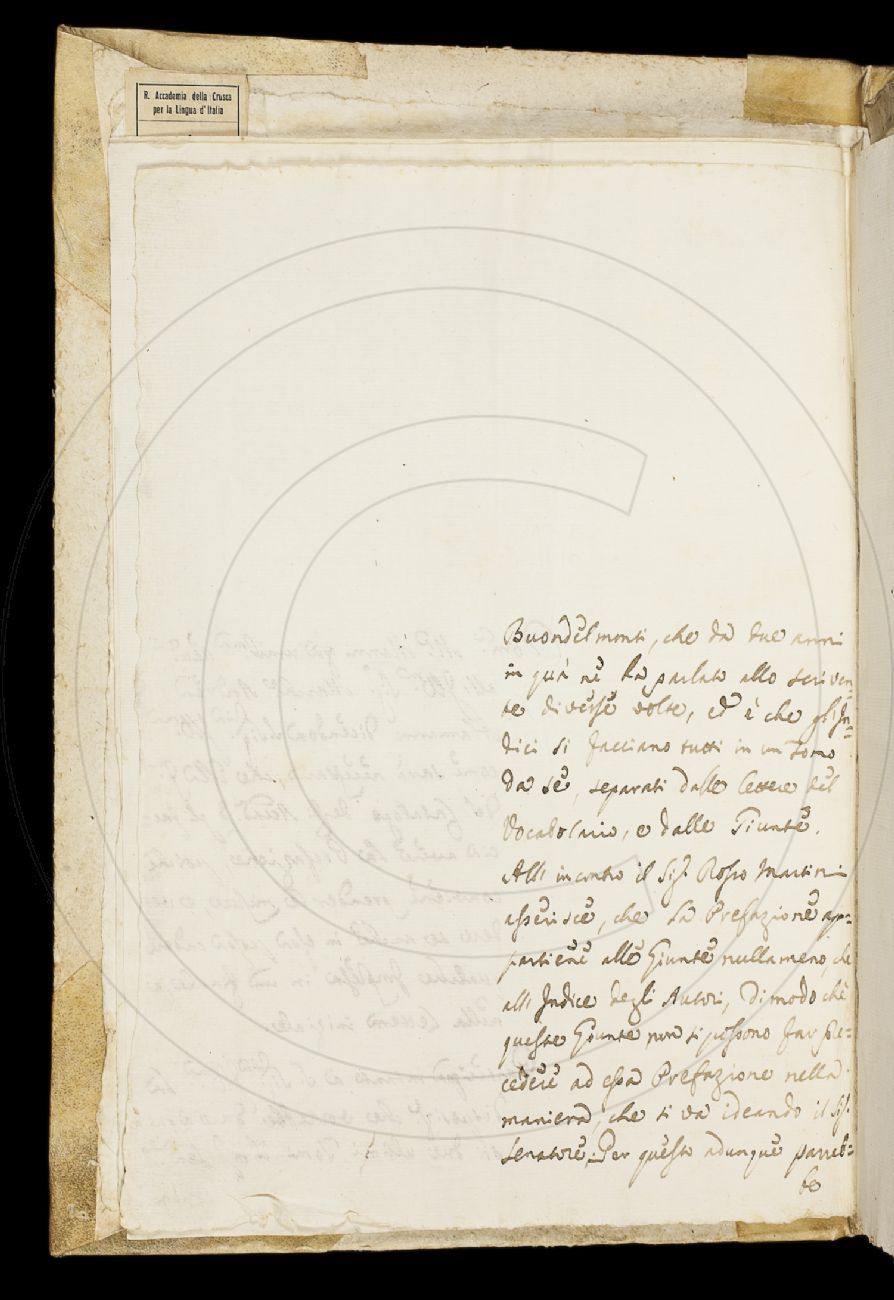 R. Accademia della Crusca
per la Lingua d'Italia
Buondelmonti, che da due anni
in quà ne ha parlato allo scriven=
te diverse volte, ed è che gl'In=
dici si facciano tutti in un Tomo
da se, separati dalle Lettere del
Vocabolario, e dalle Giunte.
All'incontro il Sig.r Rosso Martini
asserisce, che la Prefazione ap=
partiene alle Giunte nulla meno, che
all'Indice degli Autori, di modo che
queste Giunte non si possono far pre=
cedere ad essa Prefazione nella
maniera, che si va ideando il Sig.r
Senatore. Per questo adunque parreb=
be